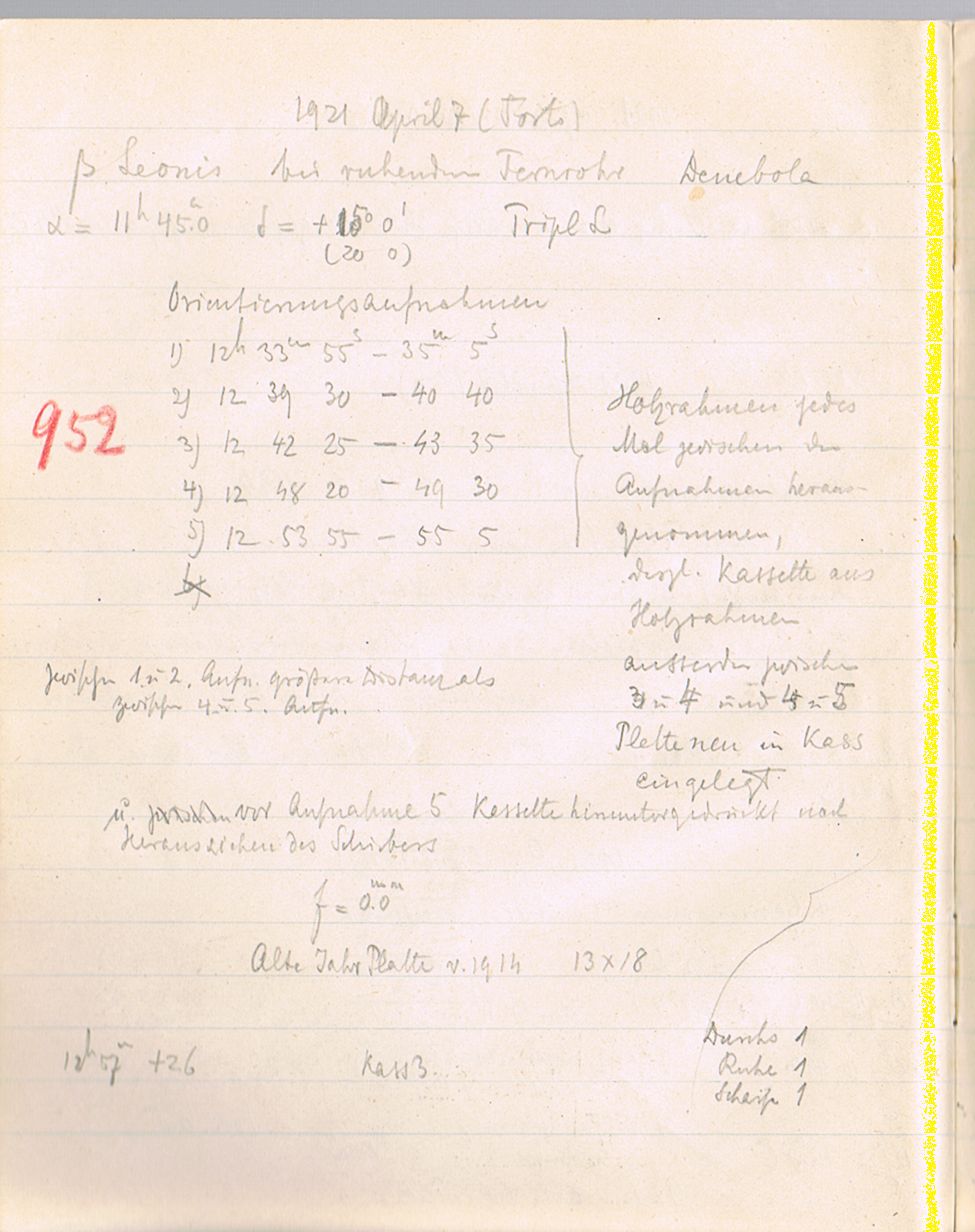 1921 April 7 (Forts)
β Leonis bei ruhendem Fernrohr Denebola
α = 11h 45.m0 δ = +15° 0'
(20 0)
Tripl L
Orientierungsaufnahmen
1) 12h 33m 55s – 35m 5s
2) 12 39 30 – 40 40
3) 12 42 25 – 43 35
4) 12 48 20 – 49 30
5) 12 53 55 – 55 5
6)
952
Holzrahmen jedes
Mal zwischen den
Aufnahmen heraus-
genommen,
desgl. Kassette aus
Holzrahmen
ausserdem zwischen
3 u 4 und 4 u 5
Platte neu in Kass
eingelegt
zwischen 1 u 2. Aufn. größere Distanz als
zwischen 4 u. 5. Aufn.
u. vor Aufnahme 5 Kassette hinuntergedrückt nach
Herausziehen des Schiebers
f = 0.0 mm
Alte Jahr Platte v. 1914 13 x 18
12h 57m +26 Kass 3.
Durchs 1
Ruhe 1
Schärfe 1